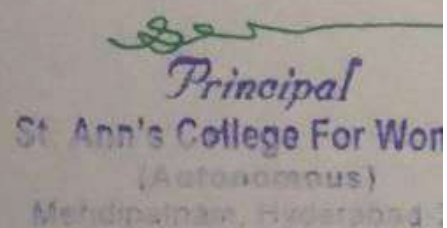 Principal
St. Ann's College For Wom
(Autonomous)
Mehdipatnam, Hyderabad